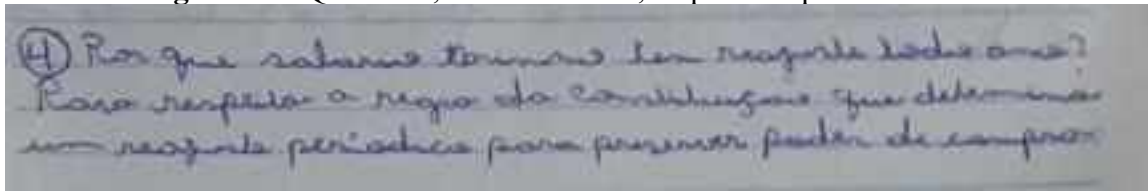 ④ Por que salario minimo tem reajuste todo ano?
Para respeita a regra da Constituição que determina
um reajuste periodico para preservar poder de compra